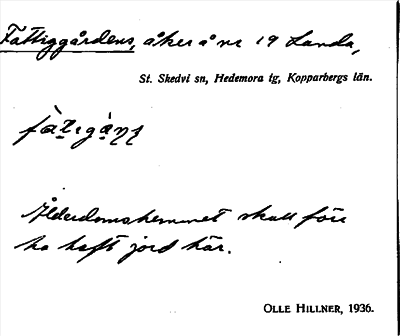 Fattiggårdens, åker å nr 19 Landa,
St. Skedvi sn, Hedemora tg, Kopparbergs län.
Ålderdomshemmet skall förr
ha haft jord här.
OLLE HILLNER, 1936.